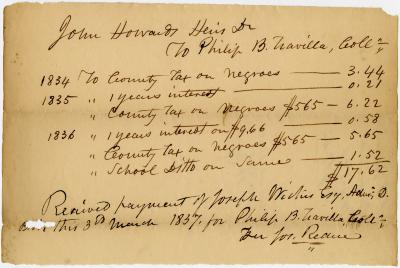 John Howards Heirs Dr
To Philip B. Travilla, Coll.r
1834 To County Tax on Negroes — 3.44
1835 " 1 years interest — 0.21
" County tax on Negroes $565 — 6.22
1836 " 1 years interest on $9.66 — 0.58
" County tax on negroes $565 — 5.65
" School Ditto on Same — 1.52
$17.62
Received payment of Joseph Wickes Esq. Adm. D.
this 3rd March 1837. for Philip B. Travilla Coll.r
Per Jos. Redue